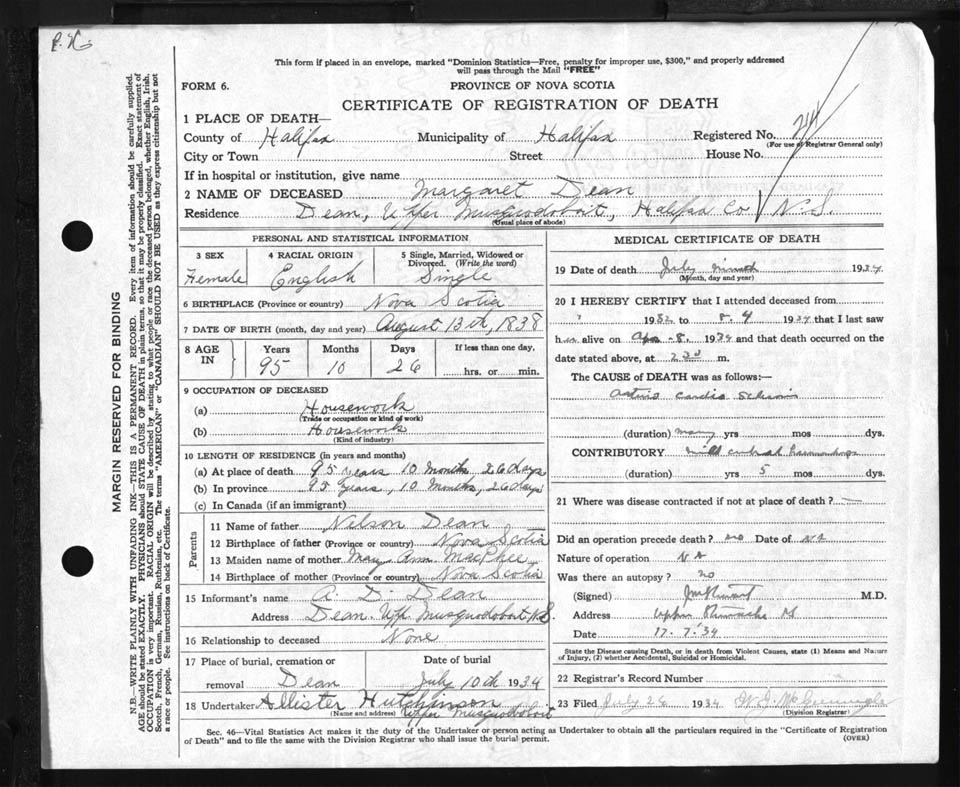 This form if placed in an envelope, marked "Dominion Statistics—Free, penalty for improper use, $300," and properly addressed
will pass through the Mail "FREE"
FORM 6.
PROVINCE OF NOVA SCOTIA
CERTIFICATE OF REGISTRATION OF DEATH
1 PLACE OF DEATH—
County of Halifax Municipality of Halifax Registered No.
(For use of Registrar General only)
City or Town Street House No.
If in hospital or institution, give name
2 NAME OF DECEASED Margaret Dean
Residence Dean, Upper Musquodoboit, Halifax Co N.S.
(Usual place of abode)
PERSONAL AND STATISTICAL INFORMATION
3 SEX
Female
4 RACIAL ORIGIN
English
5 Single, Married, Widowed or
Divorced. (Write the word)
Single
6 BIRTHPLACE (Province or country) Nova Scotia
7 DATE OF BIRTH (month, day and year) August 13th, 1838
8 AGE IN
Years Months Days If less than one day,
95 10 26 hrs. or min.
9 OCCUPATION OF DECEASED
(a) Housework
(Trade or occupation or kind of work)
(b) Housework
(Kind of industry)
10 LENGTH OF RESIDENCE (in years and months)
(a) At place of death 95 years 10 Months, 26 days
(b) In province 95 years, 10 Months, 26 days
(c) In Canada (if an immigrant)
Parents
11 Name of father Nelson Dean
12 Birthplace of father (Province or country) Nova Scotia
13 Maiden name of mother Mary Ann MacPhee
14 Birthplace of mother (Province or country) Nova Scotia
15 Informant's name A. D. Dean
Address Dean. Upp Musquodoboit N.S.
16 Relationship to deceased None
17 Place of burial, cremation or
removal Dean
Date of burial
July 10th 1934
18 Undertaker Allister Hutchinson
(Name and address) Upper Musquodoboit
MEDICAL CERTIFICATE OF DEATH
19 Date of death July ninth 1934
(Month, day and year)
20 I HEREBY CERTIFY that I attended deceased from
" 1932 to 8. 9 1934 that I last saw
h alive on 8. 1934 and that death occurred on the
date stated above, at m.
The CAUSE of DEATH was as follows:—
(duration) many yrs mos dys.
CONTRIBUTORY
(duration) yrs 5 mos dys.
21 Where was disease contracted if not at place of death? —
Did an operation precede death? no Date of
Nature of operation
Was there an autopsy? no
(Signed) M.D.
Address
Date 17. 7. 34
State the Disease causing Death, or in death from Violent Causes, state (1) Means and Nature
of Injury, (2) whether Accidental, Suicidal or Homicidal.
22 Registrar's Record Number
23 Filed July 26 1934
(Division Registrar)
Sec. 46—Vital Statistics Act makes it the duty of the Undertaker or person acting as Undertaker to obtain all the particulars required in the "Certificate of Registration
of Death" and to file the same with the Division Registrar who shall issue the burial permit. (OVER)
MARGIN RESERVED FOR BINDING
N.B.—WRITE PLAINLY WITH UNFADING INK—THIS IS A PERMANENT RECORD. Every item of information should be carefully supplied.
AGE should be stated EXACTLY. PHYSICIANS should STATE CAUSE OF DEATH in plain terms, so that it may be properly classified. Exact statement of
OCCUPATION is very important. RACIAL ORIGIN will be described by stating to what people or race the deceased person belonged, whether English, Irish,
Scotch, French, German, Russian, Ruthenian, etc. The terms "AMERICAN" or "CANADIAN" SHOULD NOT BE USED as they express citizenship but not
a race or people. See instructions on back of Certificate.